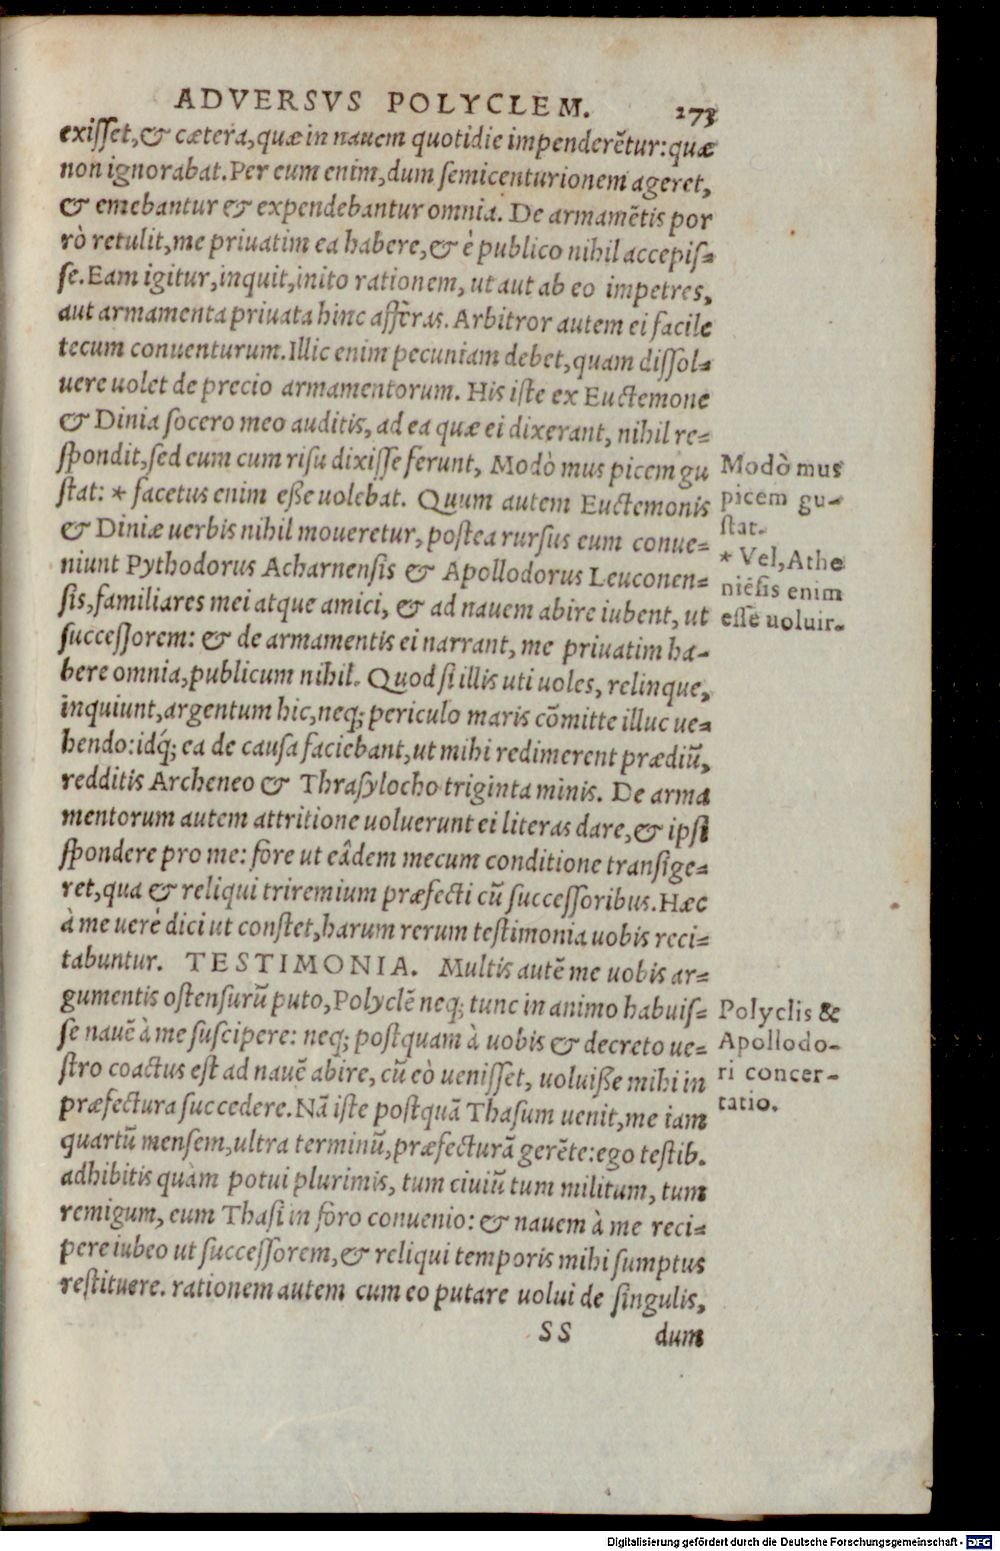 ADVERSVS POLYCLEM. 273
exisset, & cætera, quæ in nauem quotidie impenderẽtur: quæ
non ignorabat. Per eum enim, dum semicenturionem ageret,
& emebantur & expendebantur omnia. De armamẽtis por
rò retulit, me priuatim ea habere, & è publico nihil accepis=
se. Eam igitur, inquit, inito rationem, ut aut ab eo impetres,
aut armamenta priuata hinc afferas. Arbitror autem ei facile
tecum conuenturum. Illic enim pecuniam debet, quam dissol=
uere uolet de precio armamentorum. His iste ex Euctemone
& Dinia socero meo auditis, ad ea quæ ei dixerant, nihil re=
spondit, sed eum cum risu dixisse ferunt, Modò mus picem gu
stat: * facetus enim eße uolebat. Quum autem Euctemonis
& Diniæ uerbis nihil moueretur, postea rursus eum conue=
niunt Pythodorus Acharnensis & Apollodorus Leuconen=
sis, familiares mei atque amici, & ad nauem abire iubent, ut
successorem: & de armamentis ei narrant, me priuatim ha-
bere omnia, publicum nihil. Quod si illis uti uoles, relinque,
inquiunt, argentum hic, neq; periculo maris cõmitte illuc ue=
hendo: idq́; ea de causa faciebant, ut mihi redimerent prædiũ,
redditis Archeneo & Thrasylocho triginta minis. De arma
mentorum autem attritione uoluerunt ei literas dare, & ipsi
spondere pro me: fore ut eâdem mecum conditione transige=
ret, qua & reliqui triremium præfecti cũ successoribus. Hæc
à me uerè dici ut constet, harum rerum testimonia uobis reci=
tabuntur. TESTIMONIA. Multis autẽ me uobis ar=
gumentis ostensurũ puto, Polyclẽ neq; tunc in animo habuis=
se nauẽ à me suscipere: neq; postquam à uobis & decreto ue=
stro coactus est ad nauẽ abire, cũ eò uenisset, uoluiße mihi in
præfectura succedere. Nã iste postquã Thasum uenit, me iam
quartũ mensem, ultra terminũ, præfecturã gerẽte: ego testib.
adhibitis quàm potui plurimis, tum ciuiũ tum militum, tum
remigum, eum Thasi in foro conuenio: & nauem à me reci=
pere iubeo ut successorem, & reliqui temporis mihi sumptus
restituere. rationem autem cum eo putare uolui de singulis,
SS dum
Modò mus
picem gu-
stat.
* Vel, Athe
niẽsis enim
esse uoluit.
Polyclis &
Apollodo-
ri concer-
tatio.
Digitalisierung gefördert durch die Deutsche Forschungsgemeinschaft - DFG